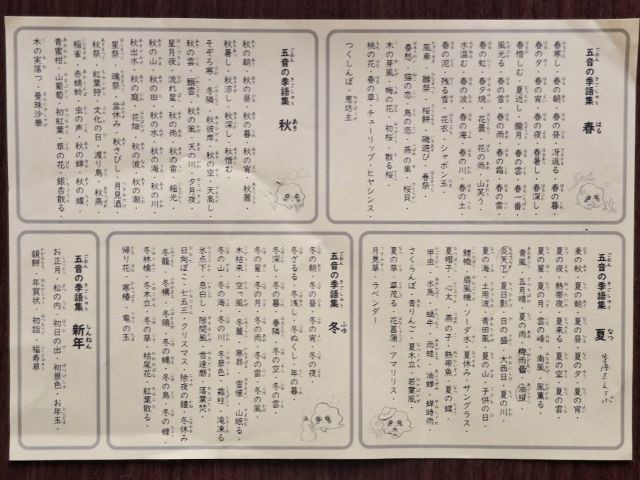 五音の季語集 春
春寒し・春の朝・春の昼・冴返る・春の暮
春の夕・春の宵・春の夜・春暑し・春深し
春惜しむ・夏近し・朧月・春の雲・春一番
風光る・春の雪・春の雨・春の霜・春の雷
春の虹・春夕焼・花曇・花の雨・山笑う
水温む・春の波・春の海・春の川・春の土
春の泥・残る雪・花衣・シャボン玉
風車・雛祭・桜餅・磯遊び・春祭
春愁・猫の恋・鳥の恋・燕の巣・桜貝
木の芽風・梅の花・初桜・散る桜
桃の花・春の草・チューリップ・ヒヤシンス・
つくしんぼ・葱坊主
五音の季語集 夏
麦の秋・夏の朝・夏の昼・夏の夕・夏の宵
夏の夜・熱帯夜・夏来る・夏の空・夏の雲
夏の星・夏の月・雲の峰・南風・風薫る・
青風・五月晴・夏の雨・梅雨曇・
炎天下・夏日影・日の盛・大西日・夏の川
夏の海・土用波・青田風・夏の山・子供の日・
鯉幟・扇風機・ソーダ水・夏休み・サングラス・
夏帽子・心太・燕の子・熱帯魚・夏の蝶
甲虫・水馬・蝸牛・雨蛙・油蝉・蝉時雨
さくらんぼ・青りんご・夏木立・若葉風
夏の草・草茂る・花菖蒲・アマリリス・
月見草・ラベンダー
五音の季語集 秋
秋の朝・秋の昼・秋の暮・秋の宵・秋麗
秋暑し・秋涼し・秋深し・秋惜む・
そぞろ寒・冬隣・秋彼岸・秋の空・天高し・
秋の雲・鰯雲・秋の風・天の川・夕月夜・
星月夜・流れ星・秋の雨・秋の宵・稲光
秋の山・秋の田・秋の水・秋の海・秋の川
秋出水・秋の庭・花畑・秋の波・秋の潮
星祭・魂祭・盆休み・秋さびし・月見酒
秋祭・紅葉狩・文化の日・渡り鳥・秋燕
稲雀・赤蜻蛉・虫の声・秋の蝉・秋の蝶・
青蜜柑・山葡萄・初紅葉・草の花・銀杏散る・
木の実落つ・曼珠沙華
五音の季語集 冬
冬の朝・冬の昼・冬の宵・冬の夜・
冬ざるる・冬浅し・冬ぬくし・年の暮
冬深し・冬の暮・春隣・冬の空・冬の雲・
冬の星・冬の月・冬の雨・冬の雷・冬の風
木枯来・空っ風・冬麗・寒昴・雪催・山眠る・
冬の山・冬の海・冬の川・冬景色・霜柱・滝凍る
氷点下・息白し・隙間風・雪達磨・落葉焚・
日向ぼこ・七五三・クリスマス・除夜の鐘・冬休み
冬籠・冬構・冬鴎・冬の蝿・冬の鳥・冬の蝶
冬林檎・冬木立・冬の草・枯尾花・紅葉散る・
帰り花・寒椿・竜の玉
五音の季語集 新年
お正月・松の内・初日の出・初景色・お年玉・
鏡餅・年賀状・初詣・福寿草